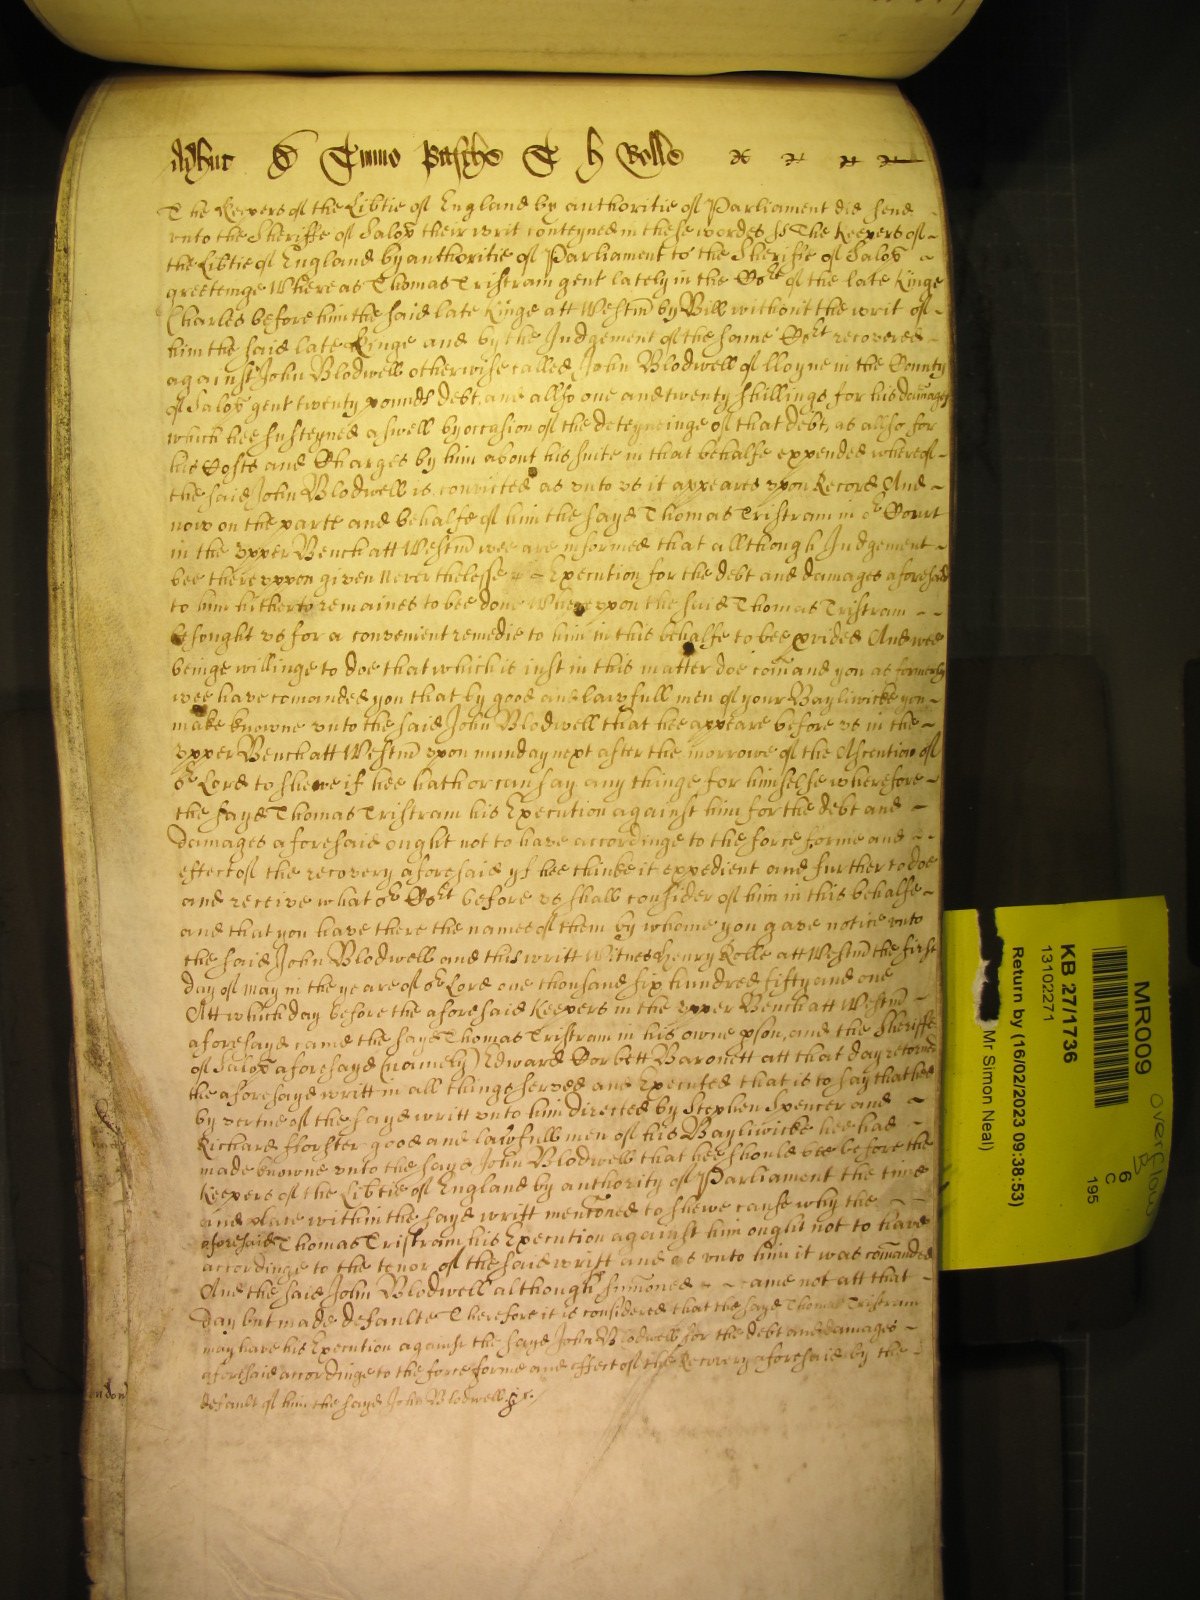 Adhuc de Termino Pasche T H Rolle
The Keepers of the Libtie of England by authoritie of Parliament did send
unto the Sheriffe of Salop their writ conteyned in these wordes ss The Keepers of
the Libtie of England by authoritie of Parliament to the Sheriffe of Salop
greeteinge Whereas Thomas Tristram gent lately in the Cort of the late Kinge
Charles before him the said late Kinge att Westm by Bill without the writ of
him the said late Kinge and by the Judgement of the same Cort recovered
against John Blodwell otherwise called John Blodwell of lloyne in the County
of Salop gent twenty pounds debt, and allso one and twenty shillings for his damages
which hee susteyned aswell by occasion of the deteyneinge of that debt, as allso for
his Costs and Charges by him about his suite in that behalfe expended whereof
the said John Blodwell is convicted as unto us it appeares upon Record And
now on the parte and behalfe of him the sayd Thomas Tristram in or Court
in the upper Bench att Westm wee are informed that allthough Judgement
bee thereuppon given Neverthelesse Execution for the debt and damages aforesaid
to him hitherto remaines to bee done Whereuppon the said Thomas Tristram
besought us for a convenient remedie to him in this behalfe to bee pvided And wee
beinge willinge to doe that which is iust in this matter doe comand you as formerly
wee have comanded you that by good and lawfull men of your Bayliwicke you
make knowne unto the said John Blodwell that hee appeare before us in the
upper Bench att Westm upon munday next after the morrowe of the Ascention of
or Lord to shewe if hee hath or can say any thinge for himselfe wherefore
the sayd Thomas Tristram his Execution against him for the debt and
damages aforesaid ought not to have accordinge to the force forme and
effect of the recovery aforesaid yf hee thinke it expedient and further to doe
and receive what or Cort before us shall consider of him in this behalfe
and that you have there the names of them by whome you gave notice unto
the said John Blodwell and this writt Witnes Henry Rolle att Westm the first
day of May in the yeare of or Lord one thousand six hundred fifty and one
Att which day before the aforesaid Keepers in the upper Bench att Westm
aforesayd came the sayd Thomas Tristram in his owne pson, and the Sheriffe
of Salop aforesayd (namely) Edward Corbett Baronett att that day retorned
the aforesayd writt in all things served and Executed that is to say that hee
by vertue of the sayd writt unto him directed by Stephen Spencer and
Richard fforster good and lawfull men of his Bayliwicke hee had
made knowne unto the sayd John Blodwell that hee should bee before the
Keepers of the Libtie of England by authority of Parliament the time
and place within the sayd writt menconed to shewe cause why the
aforesaid Thomas Tristram his Execution against him ought not to have
accordinge to the tenor of the said writt and as unto him it was comanded
And the said John Blodwell although sumoned came not att that
day but made defaulte Therefore it is considered that the sayd Thomas Tristram
may have his Execution against the sayd John Blodwell for the debt and damages
aforesaid accordinge to the force forme and effect of the Recovery aforesaid by the
default of him the sayd John Blodwell &c.
MR009
KB 27/1736
13102271
Return by (16/02/2023 09:38:53)
Mr Simon Neal)
6
C
195
overflow